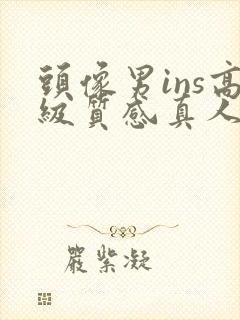 頭像男ins高
級質感真人
嚴紫凝